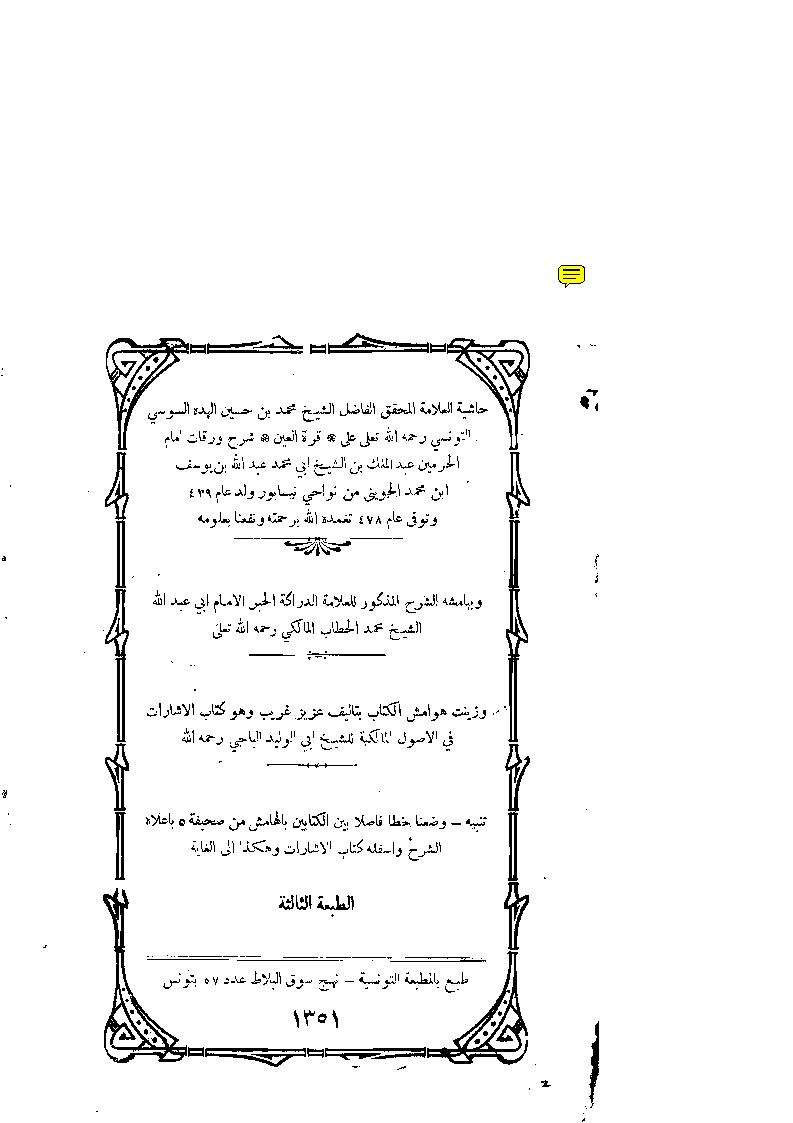 حاشية العلامة المحقق الفاضل الشيخ محمد بن حسين الهده السوسي
التونسي رحمه الله تعلى على * قرة العين * شرح ورقات امام
الحرمين عبد الملك بن الشيخ ابي محمد عبد الله بن يوسف
ابن محمد الجويني من نواحي نيسابور ولد عام ٤٣٩
وتوفى عام ٤٧٨ تغمده الله برحمته ونفعنا بعلومه
وبهامشه الشرح المذكور للعلامة الدراكة الحبر الامام ابي عبد الله
الشيخ محمد الحطاب المالكي رحمه الله تعلى
وزينت هوامش الكتاب بتاليف عزيز غريب وهو كتاب الاشارات
في الاصول المالكية للشيخ ابي الوليد الباجي رحمه الله
تنبيه — وضعنا خطا فاصلا بين الكتابين بالهامش من صحيفة ٥ باعلاه
الشرح واسفله كتاب الاشارات وهكذا الى الغاية
الطبعة الثالثة
طبع بالمطبعة التونسية — نهج سوق البلاط عدد ٥٧ بتونس
١٣٥١